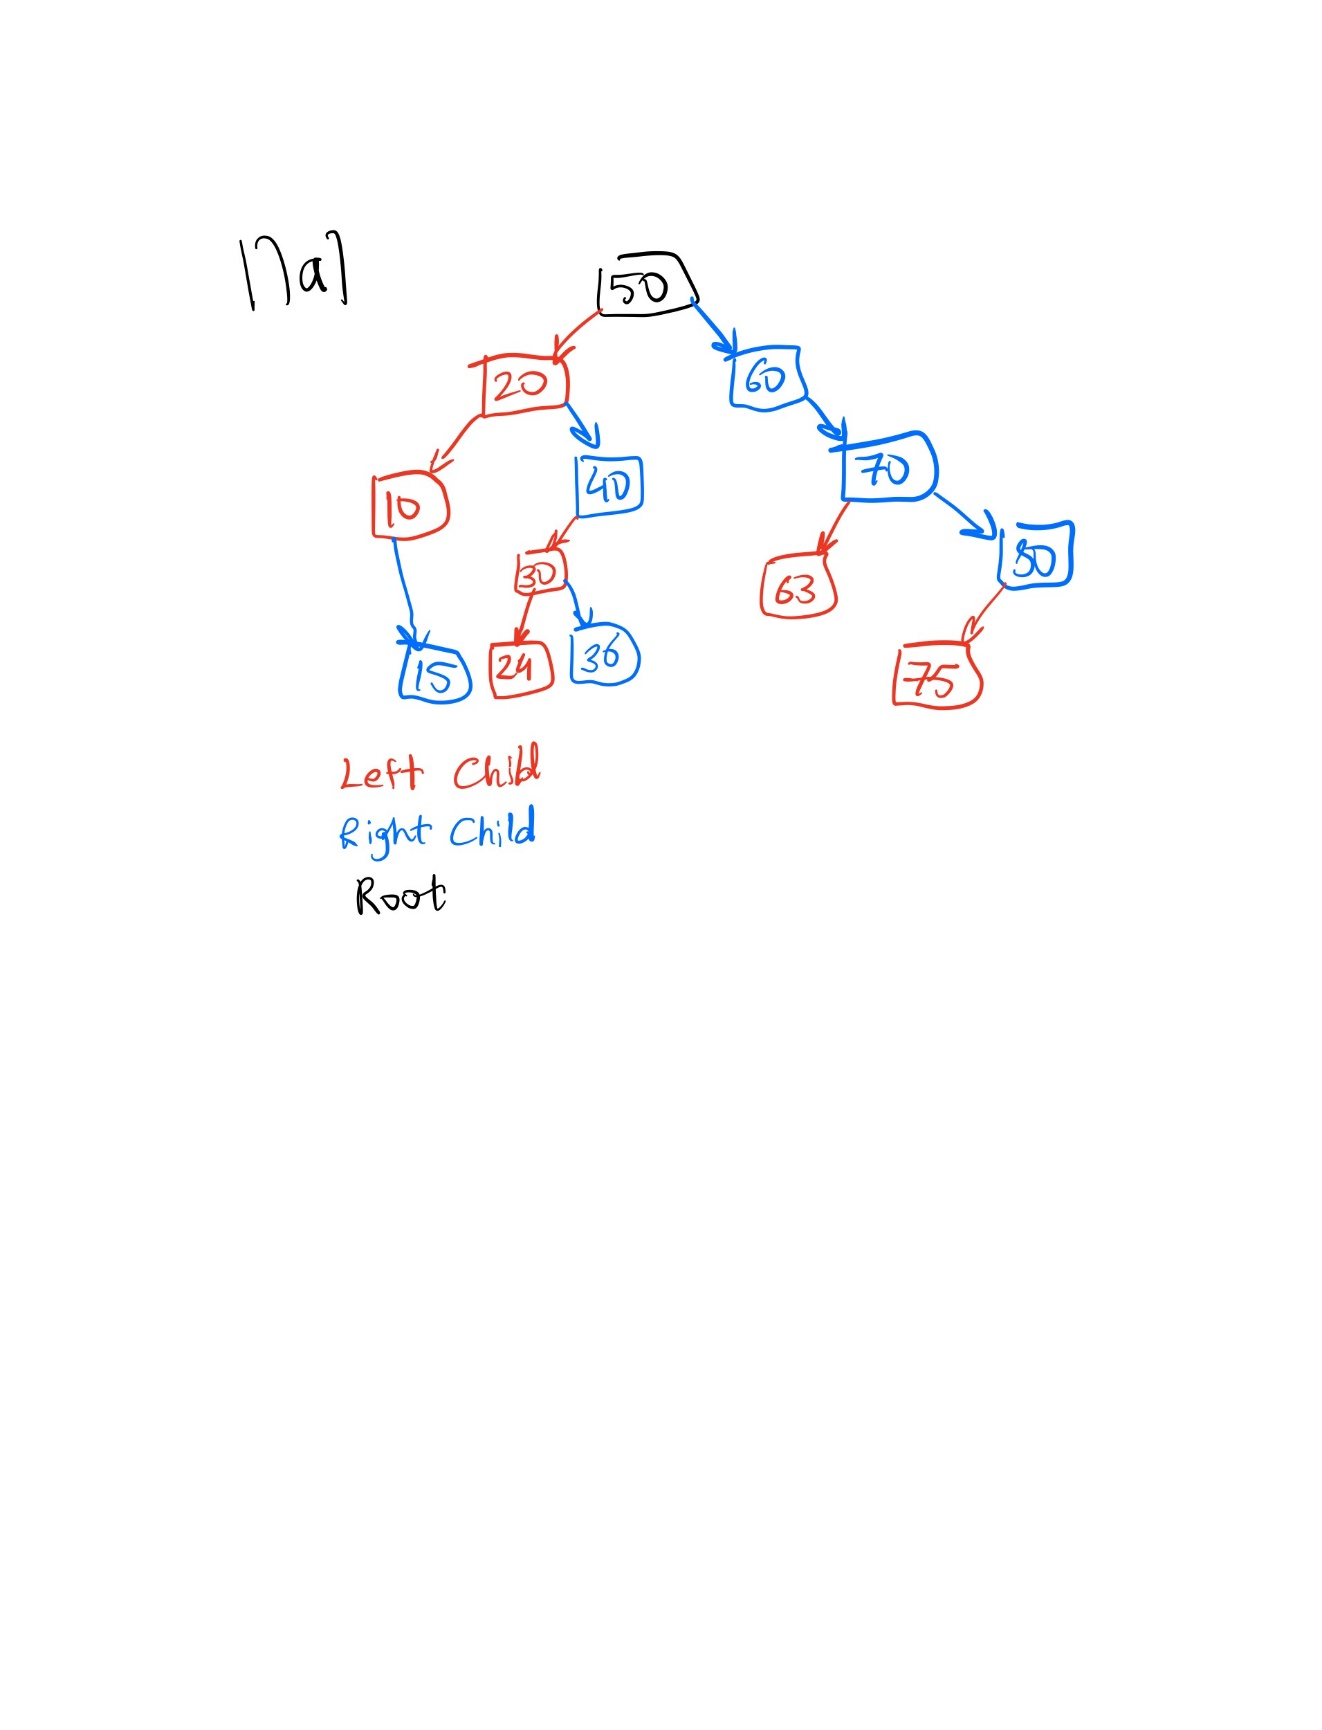 17a)
50
20 60
10 40 70
30 63 80
15 24 36 75
Left Child
Right Child
Root